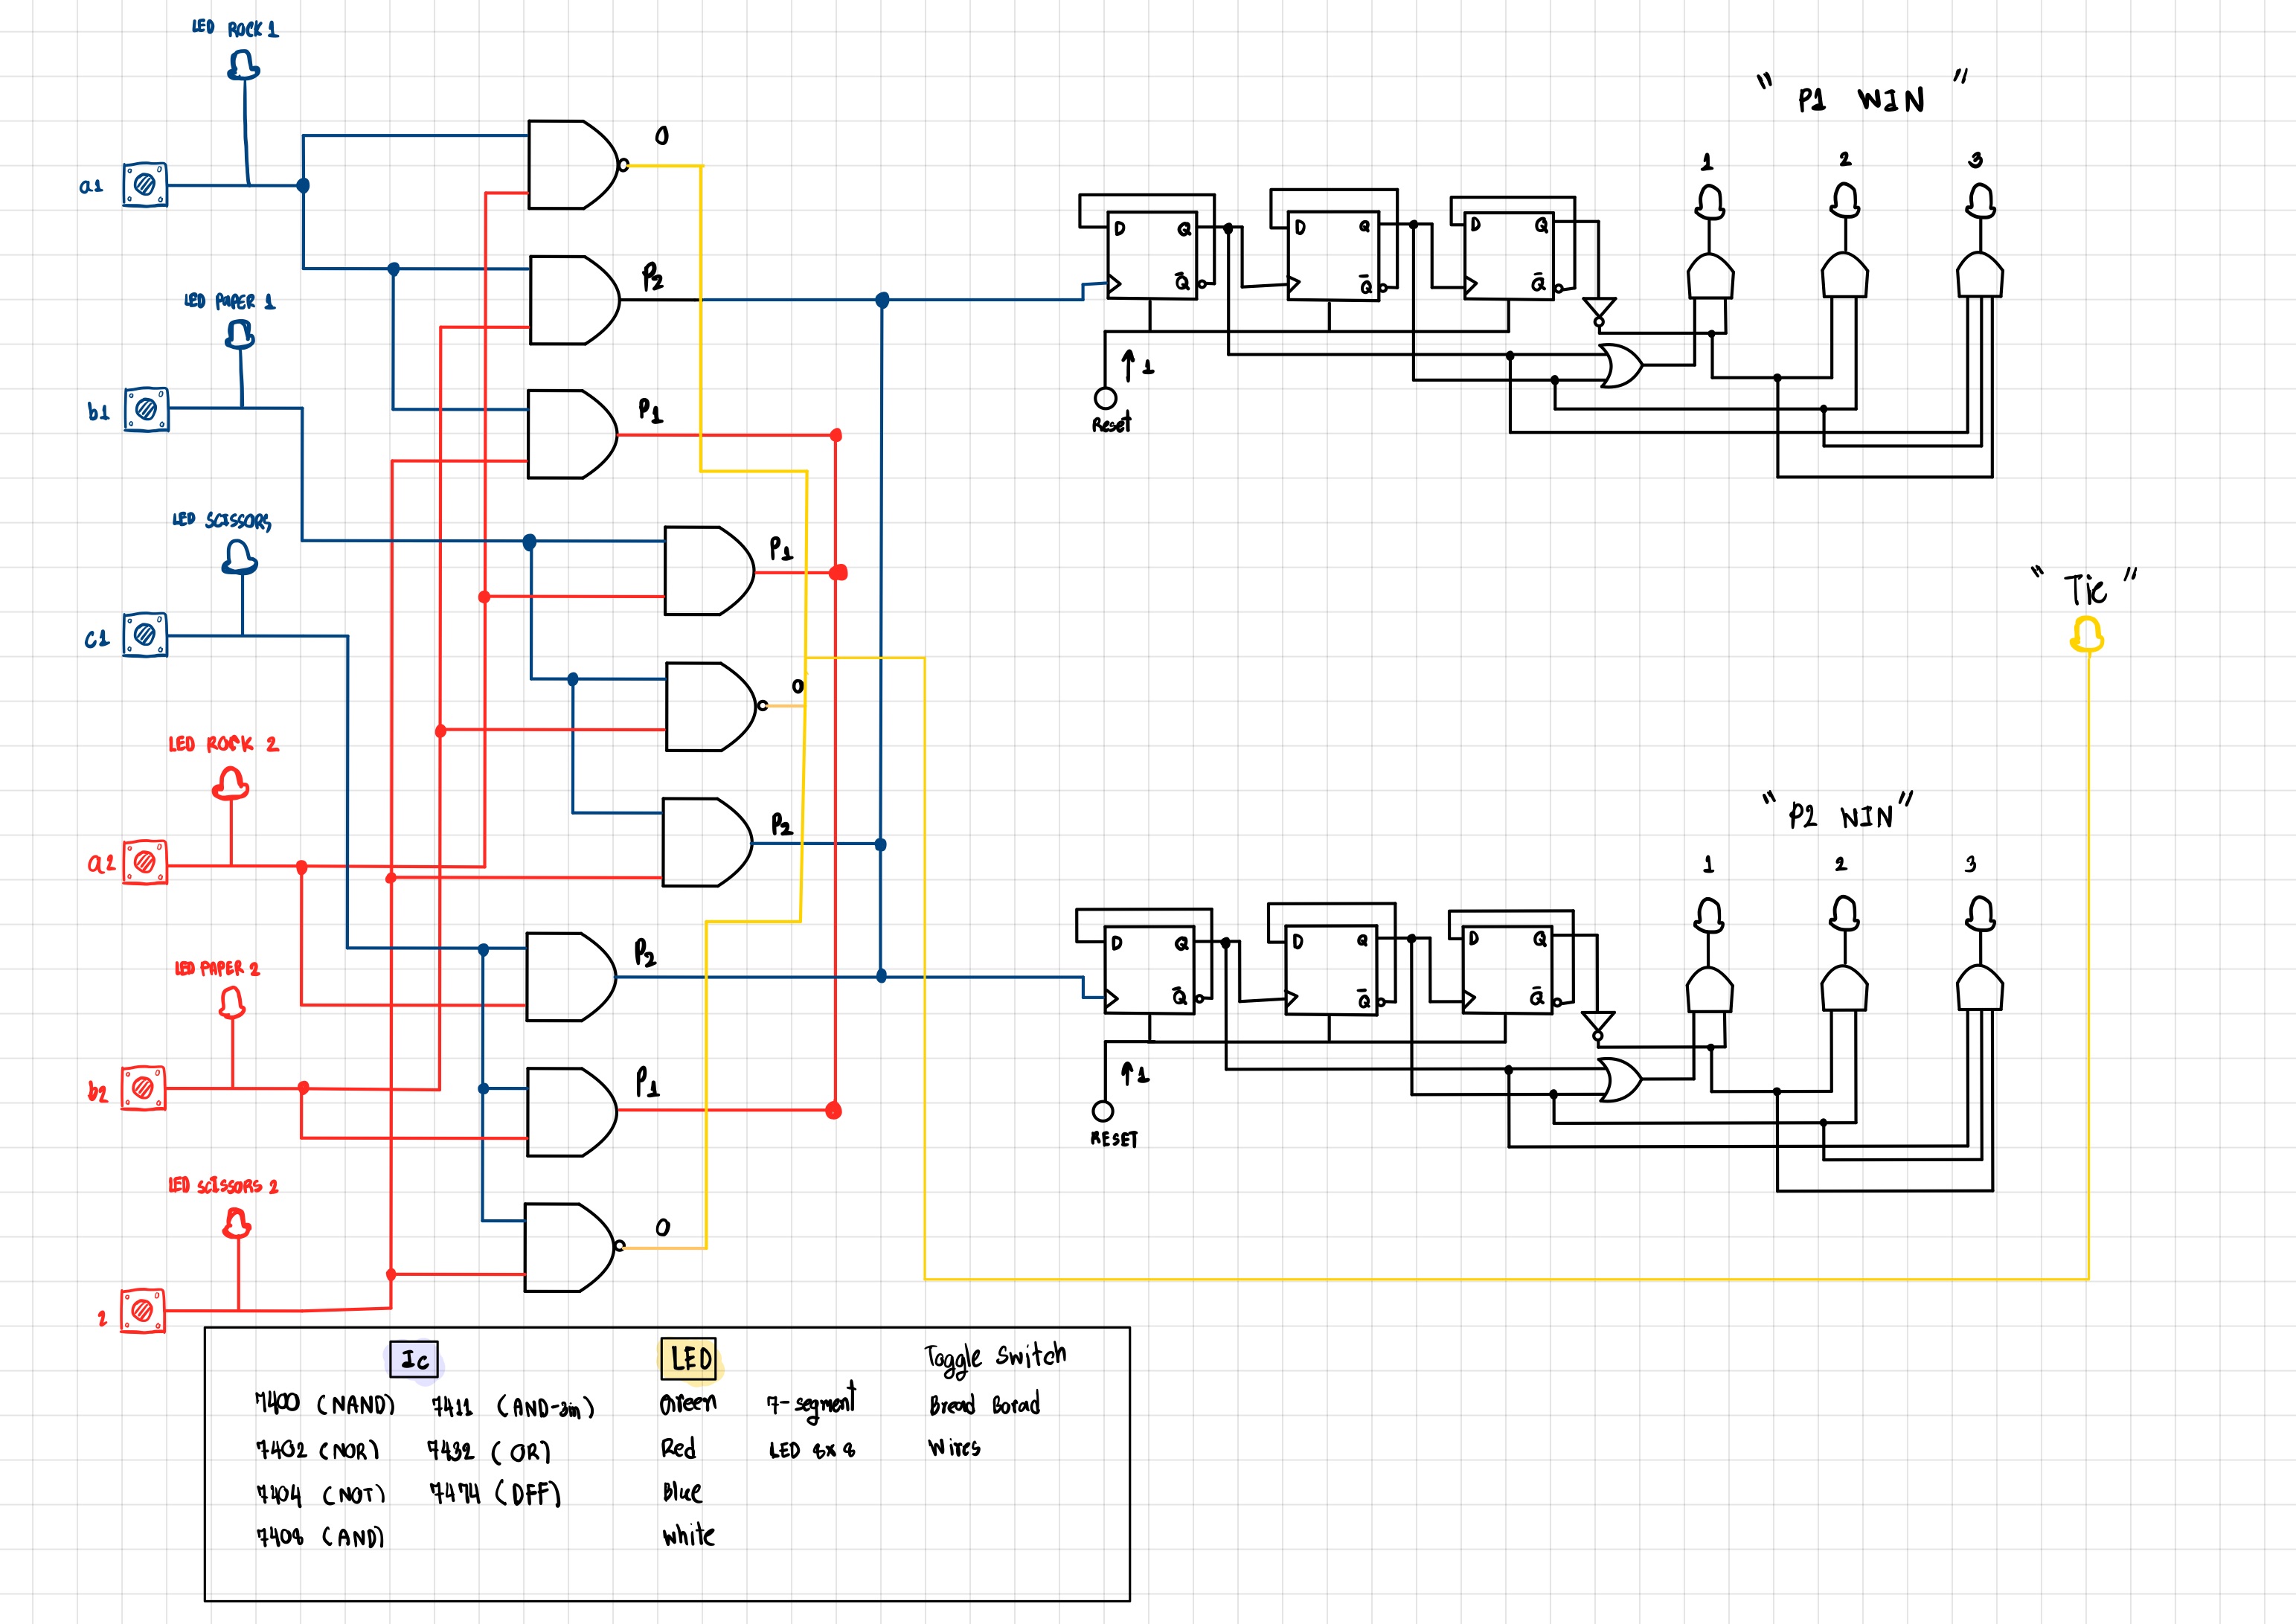 LED ROCK 1
a1
LED PAPER 1
b1
LED SCISSORS
c1
LED ROCK 2
a2
LED PAPER 2
b2
LED SCISSORS 2
2
0
P2
P1
P1
0
P2
P2
P1
0
" P1 WIN "
1 2 3
D Q Q̄
D Q Q̄
D Q Q̄
↑ 1
Reset
" Tie "
" P2 WIN "
1 2 3
D Q Q̄
D Q Q̄
D Q Q̄
↑ 1
RESET
Ic
7400 (NAND) 7411 (AND-3in)
7402 (NOR) 7432 (OR)
7404 (NOT) 7474 (DFF)
7408 (AND)
LED
Green 7-segment
Red LED 8x8
Blue
White
Toggle Switch
Bread Borad
Wires